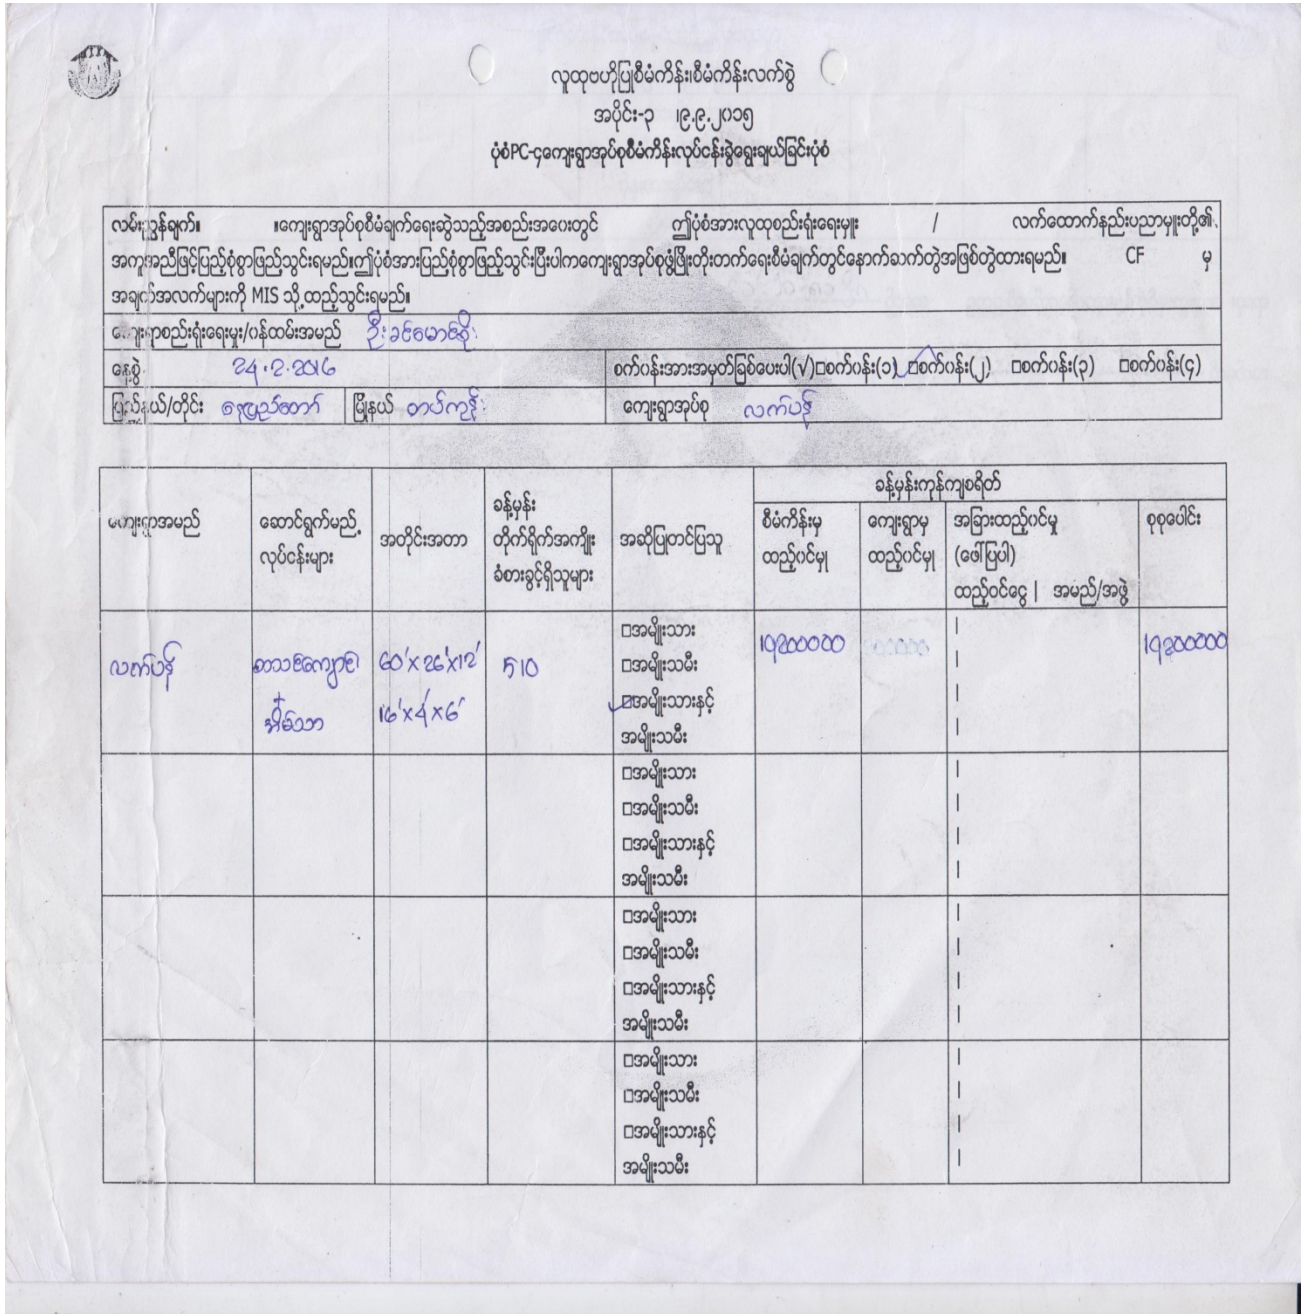 လူထုဗဟိုပြုစီမံကိန်း၊စီမံကိန်းလက်စွဲ
အပိုင်း-၃ ၊၉.၉.၂၀၁၅
ပုံစံPC-၄ကျေးရွာအုပ်စုစီမံကိန်းလုပ်ငန်းခွဲရွေးချယ်ခြင်းပုံစံ
လမ်းညွှန်ချက်။ ။ကျေးရွာအုပ်စုစီမံချက်ရေးဆွဲသည့်အစည်းအဝေးတွင် ဤပုံစံအားလူထုစည်းရုံးရေးမှူး / လက်ထောက်နည်းပညာမှူးတို့၏
အကူအညီဖြင့်ပြည့်စုံစွာဖြည့်သွင်းရမည်။ဤပုံစံအားပြည့်စုံစွာဖြည့်သွင်းပြီးပါကကျေးရွာအုပ်စုဖွံ့ဖြိုးတိုးတက်ရေးစီမံချက်တွင်နောက်ဆက်တွဲအဖြစ်တွဲထားရမည်။ CF မှ
အချက်အလက်များကို MIS သို့ထည့်သွင်းရမည်။
ကျေးရွာစည်းရုံးရေးမှုး/ဝန်ထမ်းအမည် ဦးခင်မောင်စိုး
နေ့စွဲ 24.2.2016 စက်ဝန်းအားအမှတ်ခြစ်ပေးပါ(√)□စက်ဝန်း(၁) □စက်ဝန်း(၂) □စက်ဝန်း(၃) □စက်ဝန်း(၄)
ပြည်နယ်/တိုင်း နေပြည်တော် မြို့နယ် တပ်ကုန်း ကျေးရွာအုပ်စု လက်ပန်
ကျေးရွာအမည် ဆောင်ရွက်မည့် လုပ်ငန်းများ အတိုင်းအတာ ခန့်မှန်း တိုက်ရိုက်အကျိုး ခံစားခွင့်ရှိသူများ အဆိုပြုတင်ပြသူ ခန့်မှန်းကုန်ကျစရိတ်
စီမံကိန်းမှ ထည့်ဝင်မှု ကျေးရွာမှ ထည့်ဝင်မှု အခြားထည့်ဝင်မှု (ဖေါ်ပြပါ) စုစုပေါင်း
ထည့်ဝင်ငွေ | အမည်/အဖွဲ့
လက်ပန် စာသင်ကျောင်း 60'x26'x12' 510 □အမျိုးသား
+
အိမ်သာ 16'x4'x6'
□အမျိုးသမီး
□အမျိုးသားနှင့်
အမျိုးသမီး
□အမျိုးသား
□အမျိုးသမီး
□အမျိုးသားနှင့်
အမျိုးသမီး
□အမျိုးသား
□အမျိုးသမီး
□အမျိုးသားနှင့်
အမျိုးသမီး
□အမျိုးသား
□အမျိုးသမီး
□အမျိုးသားနှင့်
အမျိုးသမီး